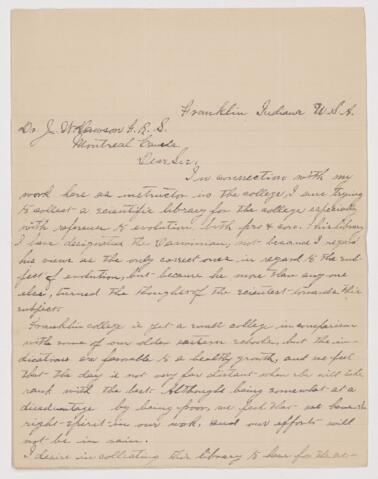 Franklin Indiana U.S.A.
Dr. J. W. Dawson F.R.S.
Montreal
Dear Sir,
In connection with my
work here as instructor in the college, I am trying
to collect a scientific library for the college especially
with reference to evolution, both pro & con. This library
I have designated the Darwinian, not because I regard
his views as the only correct ones in regard to the sub-
ject of evolution, but because he more than any one
else, turned the thought of the scientist towards this
subject.
Franklin college is yet a small college in comparison
with some of our older eastern schools, but the in-
dications are favorable to a healthy growth, and we feel
that the day is not very far distant when she will take
rank with the best. Although being somewhat at a
disadvantage by being poor, we feel that we have the
right spirit in our work, and our efforts will
not be in vain.
I desire in collecting this library to have for the ac-